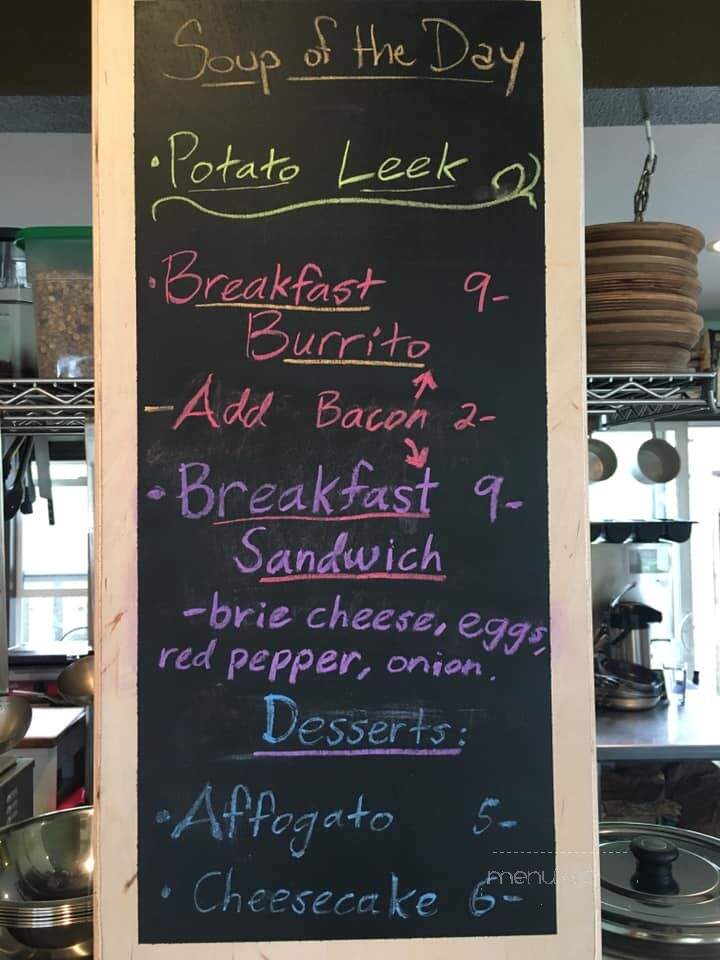 Soup of the Day
• Potato Leek
• Breakfast 9-
Burrito
- Add Bacon 2-
• Breakfast 9-
Sandwich
- brie cheese, eggs,
red pepper, onion.
Desserts:
• Affogato 5-
• Cheesecake 6-